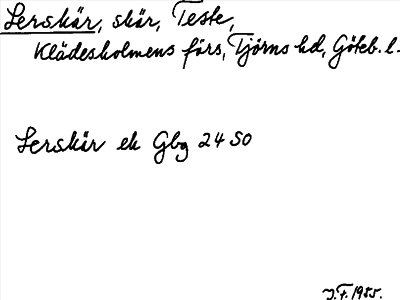 Lerskär, skär, Teste,
Klädesholmens förs, Tjörns hd, Göteb. l.
Lerskär ek Gbg 24 SO
J.F. 1985.